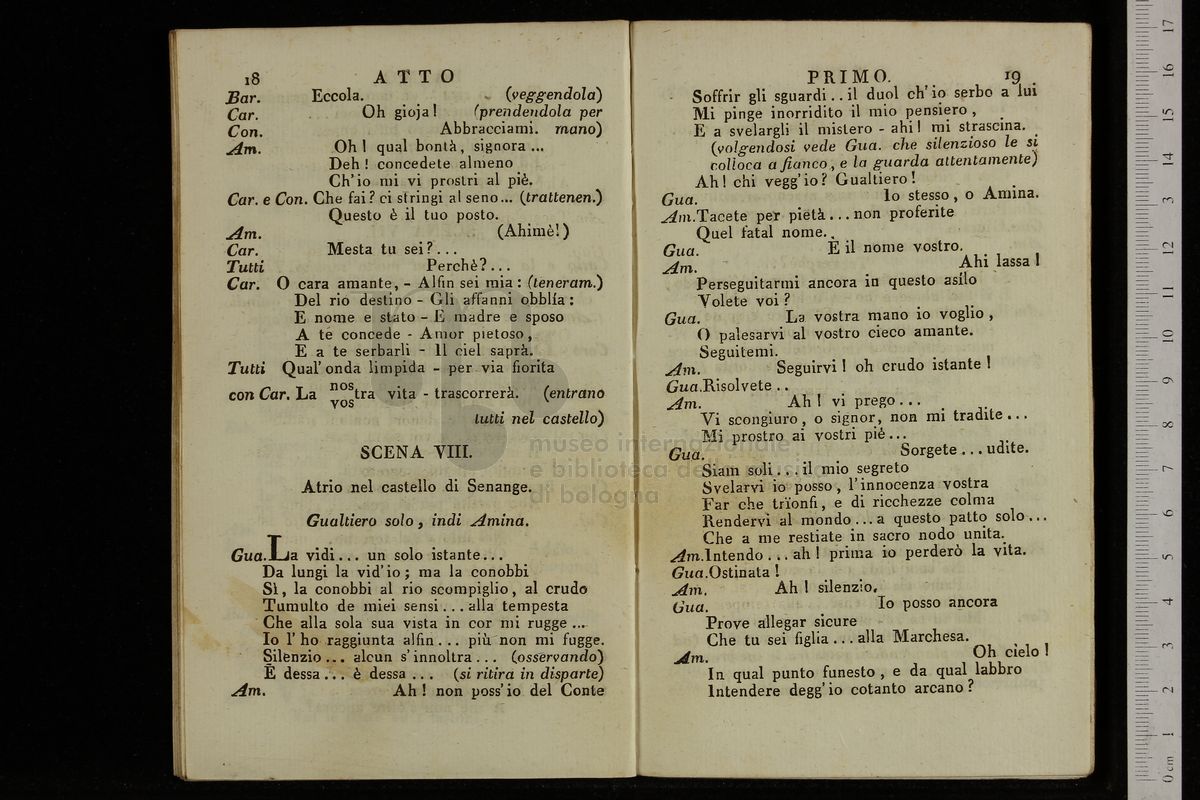 18 ATTO
Bar. Eccola. (veggendola)
Car. Oh gioja! (prendendola per
Con. Abbracciami. mano)
Am. Oh! qual bontà, signora ...
Deh! concedete almeno
Ch'io mi vi prostri al piè.
Car. e Con. Che fai? ci stringi al seno... (trattenen.)
Questo è il tuo posto.
Am. (Ahimè!)
Car. Mesta tu sei?...
Tutti Perchè?...
Car. O cara amante, - Alfin sei mia: (teneram.)
Del rio destino - Gli affanni obblía:
E nome e stato - E madre e sposo
A te concede - Amor pietoso,
E a te serbarli - Il ciel saprà.
Tutti Qual' onda limpida - per via fiorita
con Car. La nostra vita - trascorrerà. (entrano
vos
tutti nel castello)
SCENA VIII.
Atrio nel castello di Senange.
Gualtiero solo, indi Amina.
Gua. La vidi... un solo istante...
Da lungi la vid'io; ma la conobbi
Sì, la conobbi al rio scompiglio, al crudo
Tumulto de miei sensi... alla tempesta
Che alla sola sua vista in cor mi rugge ...
Io l'ho raggiunta alfin... più non mi fugge.
Silenzio... alcun s'innoltra... (osservando)
È dessa... è dessa ... (si ritira in disparte)
Am. Ah! non poss'io del Conte
PRIMO. 19
Soffrir gli sguardi.. il duol ch'io serbo a lui
Mi pinge inorridito il mio pensiero,
E a svelargli il mistero - ahi! mi strascina.
(volgendosi vede Gua. che silenzioso le si
colloca a fianco, e la guarda attentamente)
Ah! chi vegg'io? Gualtiero!
Gua. Io stesso, o Amina.
Am. Tacete per pietà... non proferite
Quel fatal nome..
Gua. È il nome vostro.
Am. Ahi lassa!
Perseguitarmi ancora in questo asilo
Volete voi?
Gua. La vostra mano io voglio,
O palesarvi al vostro cieco amante.
Seguitemi.
Am. Seguirvi! oh crudo istante!
Gua. Risolvete..
Am. Ah! vi prego...
Vi scongiuro, o signor, non mi tradite...
Mi prostro ai vostri piè...
Gua. Sorgete... udite.
Siam soli... il mio segreto
Svelarvi io posso, l'innocenza vostra
Far che trïonfi, e di ricchezze colma
Rendervi al mondo... a questo patto solo...
Che a me restiate in sacro nodo unita.
Am. Intendo... ah! prima io perderò la vita.
Gua. Ostinata!
Am. Ah! silenzio.
Gua. Io posso ancora
Prove allegar sicure
Che tu sei figlia... alla Marchesa.
Am. Oh cielo!
In qual punto funesto, e da qual labbro
Intendere degg'io cotanto arcano?
museo internazionale
e biblioteca della musica
di bologna
0 cm 1 2 3 4 5 6 7 8 9 10 11 12 13 14 15 16 17